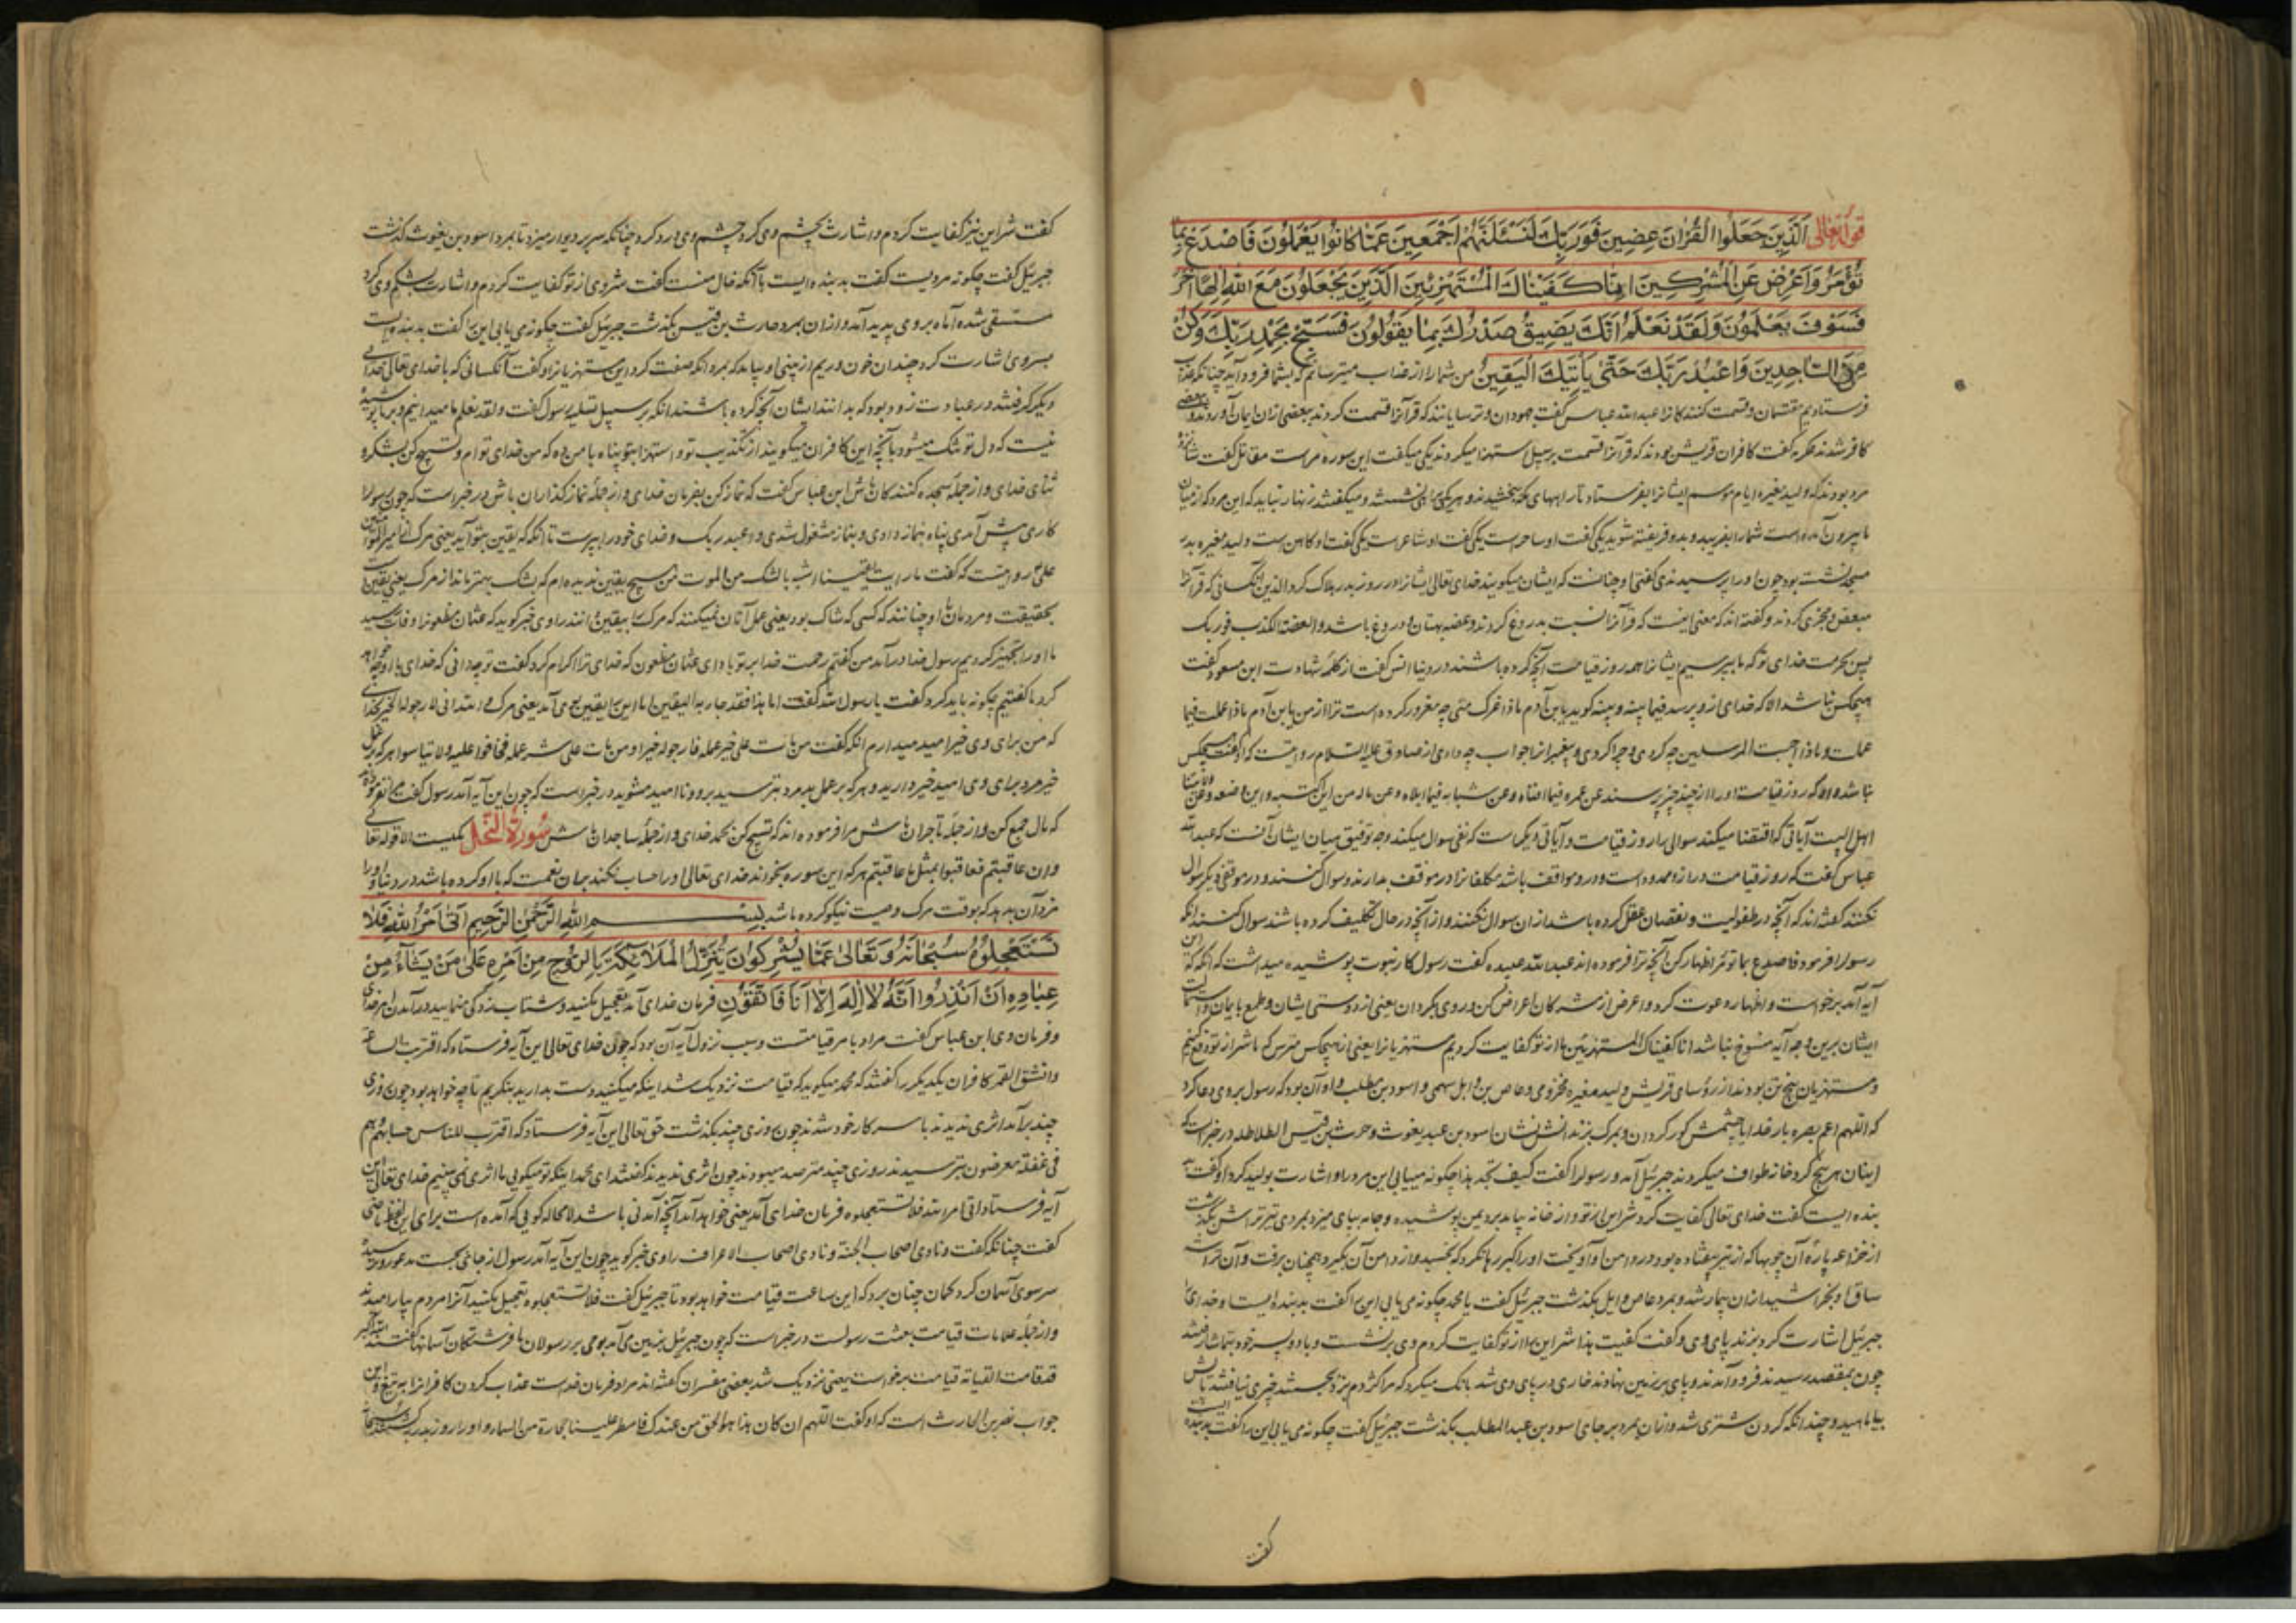 قوله تعالى الَّذِينَ جَعَلُوا الْقُرْانَ عِضِينَ فَوَرَبِّكَ لَنَسْئَلَنَّهُمْ اَجْمَعِينَ عَمَّا كَانُوا يَعْمَلُونَ فَاصْدَعْ بِمَا
تُؤْمَرُ وَاَعْرِضْ عَنِ الْمُشْرِكِينَ اِنَّا كَفَيْنَاكَ الْمُسْتَهْزِئِينَ الَّذِينَ يَجْعَلُونَ مَعَ اللهِ اِلٰهًا اٰخَرَ
فَسَوْفَ يَعْلَمُونَ وَلَقَدْ نَعْلَمُ اَنَّكَ يَضِيقُ صَدْرُكَ بِمَا يَقُولُونَ فَسَبِّحْ بِحَمْدِ رَبِّكَ وَكُنْ
مِنَ السَّاجِدِينَ وَاعْبُدْ رَبَّكَ حَتّٰى يَأْتِيَكَ الْيَقِينُ من شما را از عذاب میترسانم که بشما فرود آید چنانکه
فرستادیم بمقتسمان و قسمت کنندکان عبدالله عباس کفت جهودان و ترسایانند که قرآنرا قسمت کردند ببعضی ازان ایمان آوردند و
کافر شدند عکرمه کفت کافران قریش بودند که قرآنرا قسمت بر سبیل استهزا میکردند یکی میکفت این سوره مراست مقاتل کفت
مرد بودند که ولید مغیره ایام موسم ایشانرا بفرستاد تا راههای مکه
ما بیرون آمده است شما را نفریبد و بدو فریفته نشوید یکی کفت او ساحر است یکی کفت او شاعر است یکی کفت او کاهن است ولید مغیره بدر
مسجد نشسته بود چون او را پرسیدندی کفتی او چنانست که ایشان میکویند خدای تعالی ایشانرا در روز بدر هلاک کرد
کفته اند که معنی اینست که قرآنرا نسبت بدروغ کردند و عضه بهتان و دروغ باشد والعضة الکذب فوربک
پس بحرمت خدای تو که ما بپرسیم ایشانرا همه روز قیامت آنچه کرده باشند در دنیا انس کفت از کلمه شهادت ابن مسعود کفت
هیچکس نباشد الا که خدای ازو پرسد
عملت و ماذا اجبت المرسلین چه کردی و چرا کردی و پیغمبرانرا جواب چه دادی از صادق علیه السلام روایتست که او کفت هیچکس
نباشد والا که روز قیامت او را از چند چیز پرسند عن عمره فیما افناه وعن شبابه فیما ابلاه وعن ماله من این اکتسبه واین وضعه
اهل البیت آیاتی که اقتضا میکند سوال را روز قیامت و آیاتی دیکر است که نفی سوال میکند وجه توفیق میان ایشان آنست که عبدالله
عباس کفت که روز قیامت دراز و ممدود است و درو مواقف باشد مکلفانرا در موقف بدارند و سوال کنند و در موقفی دیکر سوال
نکنند کفته اند که آنچه در طفولیت و نقصان عقل کرده باشد ازان سوال نکنند و از آنچه در حال تکلیف کرده باشند سوال کنند
رسول را فرمود فاصدع بما تؤمر اظهار کن آنچه ترا فرموده اند عبدالله عبیده کفت رسول کار نبوت پوشیده میداشت
آیه آمد برخواست و اظهار دعوت کرد و اعرض از مشرکان اعراض کن و روی بکردان یعنی از دوستی ایشان و طمع بایمان
ایشان برین وجه آیه منسوخ نباشد انا کفیناک المستهزئین ما از تو کفایت کردیم مستهزیانرا یعنی از هیچکس مترس که ما شر از تو دفع کنیم
و مستهزیان پنج تن بودند از رؤسای قریش ولید مغیره مخزومی و عاص بن وایل سهمی و اسود بن مطلب و او آن بود که رسول بروی دعا کرد
که اللهم اعم بصره بار خدایا چشمش کور کردان و بمرک فرزندانش نشان اسود بن عبد یغوث و حرث بن قیس الطلاطله در خبر است که
اینان هر پنج کرد خانه طواف میکردند جبرئیل آمد و رسول را کفت کیف تجد هذا چکونه مییابی این مرد را و اشارت بولید کرد او کفت
بنده ایست کفت خدای تعالی کفایت کرد شر این از تو
از خزاعه پاره آن چوبها که از تیر بیفتاده بود در دامن او آویخت او را کبر رها نکرد که بجسبد و از دامن آن بکیرد همچنان برفت
ساق او بخراشید ازان بیمار شد و بمرد عاص وایل بکذشت جبرئیل کفت یا محمد چکونه می یابی این را کفت بد بنده ایست
جبرئیل اشارت کرد بزیر پای وی و کفت کفیت هذا شر این را از تو کفایت کردم وی برنشست و با دو پسر خود بتماشا رفتند
چون بمقصد رسیدند فرود آمدند و پای بر زمین نهاد خاری در پای وی شد بانک میکرد که مرا کژدم بزد بجستند چیزی نیافتند
بیاماسید و چندانکه کردن شتری شد و ازان بمرد بر جای اسود بن عبدالمطلب بکذشت جبرئیل کفت چکونه می یابی این را کفت بد بنده
کفت
کفت شر این نیز کفایت کردم و اشارت بچشم وی کرد چشم وی درد کرد چنانکه سر بر دیوار میزد تا بمرد اسود بن یغوث کذشت
جبرئیل کفت چکونه مردیست کفت بد بنده ایست با آنکه خال منست کفت شر وی از تو کفایت کردم و اشارت بشکم وی کرد
مستسقی شد و آماه بروی پدید آمد و ازان بمرد حارث بن قیس بکذشت جبرئیل کفت چکونه می یابی این را کفت بد بنده ایست
بسر وی اشارت کرد چندان خون و ریم از بینی او بیامد که بمرد آنکه صفت کرد این مستهزیانرا و کفت آنکسانی که با خدای تعالی خدای
دیکر کرفتند در عبادت زود بود که بدانند ایشان آنچه کرده باشند آنکه بر سبیل تسلیه رسول کفت ولقد نعلم ما میدانیم و بر ما پوشیده
نیست که دل تو تنک میشود بآنچه این کافران میکویند از تکذیب تو و استهزا بتو پناه با من ده که من خدای توام و تسبیح کن بشکر و
ثنای خدای و از جمله سجده کنندکان باش ابن عباس کفت که نماز کن بفرمان خدای و از جمله نماز کذاران باش در خبر است که چون رسول را
کاری پیش آمدی پناه بنماز دادی و بنماز مشغول شدی و اعبد ربک و خدای خود را بپرست تا آنکه که یقین بتو آید یعنی مرک
علی روایتست که کفت ما رایت یقینا اشبه بالشک من الموت من هیچ یقین ندیده ام که بشک بهتر ماند از مرک یعنی یقین
بحقیقت و مردمان او چنانند که کسی که شاک بود یعنی عمل آنان نمیکنند که مرک را بیقین دانند راوی خبر کوید که عثمان مظعون را وفات رسید
ما او را تجهیز کردیم رسول خدا در آمد من کفتم رحمت خدا بر تو باد ای عثمان مظعون که خدای ترا اکرام کرد کفت تو چه دانی که خدای با او چه خواهد
کرد ما کفتیم چکونه باید کرد کفت یا رسول الله کفت اما هذا فقد جاء به الیقین اما این را یقین بوی آمد یعنی مرک
که من برای وی خیر امید میدارم آنکه کفت من مات علی خیر عمله فارجوله خیرا ومن مات علی شر عمله فخافوا علیه ولا تیاسوا هر که بر عمل
خیر مرد برای وی امید خیر دارید و هر که بر عمل بد مرد بترسید برو و ناامید مشوید در خبر است که چون این آیه آمد رسول کفت
که مال جمع کن و از جمله تاجران باش مرا فرموده اند که تسبیح کن بحمد خدای و از جمله ساجدان باش سُورَةُ النَّحْل مکیست الا قوله تعالی
وان عاقبتم فعاقبوا بمثل ما عاقبتم هر که این سوره بخواند خدای تعالی او را حساب نکند بدان نعمت که با او کرده باشد در دنیا و او را
مزد آن بدهد که بوقت مرک وصیت نیکو کرده باشد بِسْمِ اللهِ الرَّحْمٰنِ الرَّحِيمِ اَتٰى اَمْرُ اللهِ فَلَا
تَسْتَعْجِلُوهُ سُبْحَانَهُ وَتَعَالٰى عَمَّا يُشْرِكُونَ يُنَزِّلُ الْمَلَائِكَةَ بِالرُّوحِ مِنْ اَمْرِهِ عَلٰى مَنْ يَشَاءُ مِنْ
عِبَادِهِ اَنْ اَنْذِرُوا اَنَّهُ لَا اِلٰهَ اِلَّا اَنَا فَاتَّقُونِ فرمان خدای آمد تعجیل مکنید و شتاب زدکی منمایید در آمدن امر خدای
و فرمان وی ابن عباس کفت مراد بامر قیامتست و سبب نزول آیه آن بود که چون خدای تعالی این آیه فرستاد که اقتربت الساعة
وانشق القمر کافران یکدیکر را کفتند که محمد میکوید که قیامت نزدیک شد اینکه میکنید دست بدارید بنکریم تا چه خواهد بود چون روزی
چند برآمد اثری ندیدند با سر کار خود شدند چون روزی چند بکذشت حق تعالی این آیه فرستاد که اقترب للناس حسابهم وهم
فی غفلة معرضون بترسیدند روزی چند مترصد میبودند چون اثری ندیدند کفتند ای محمد اینکه تو میکویی ما اثری نمی بینیم خدای تعالی این
آیه فرستاد اتی امر الله فلا تستعجلوه فرمان خدای آمد یعنی خواهد آمد آنچه آمدنی باشد لا محاله کویی که آمده است برای این لفظ ماضی
کفت چنانکه کفت ونادی اصحاب الجنة ونادی اصحاب الاعراف راوی خبر کوید چون این آیه آمد رسول از جای بجست
سر سوی آسمان کرد کمان چنان برد که این ساعت قیامت خواهد بود تا جبرئیل کفت فلا تستعجلوه تعجیل مکنید آنرا مردم بیارامیدند
و از جمله علامات قیامت بعثت رسولست در خبر است که چون جبرئیل بزمین می آمد بوحی بر رسولان ما فرشتکان آسمانها کفتند الله اکبر
قد قامت القیامة قیامت برخواست یعنی نزدیک شد بعضی مفسران کفته اند مراد فرمان خداست عذاب کردن کافرانرا به تیغ و این
جواب نضر بن الحارث است که او کفت اللهم ان کان هذا هو الحق من عندک فامطر علینا حجارة من السماء و او را روز بدر